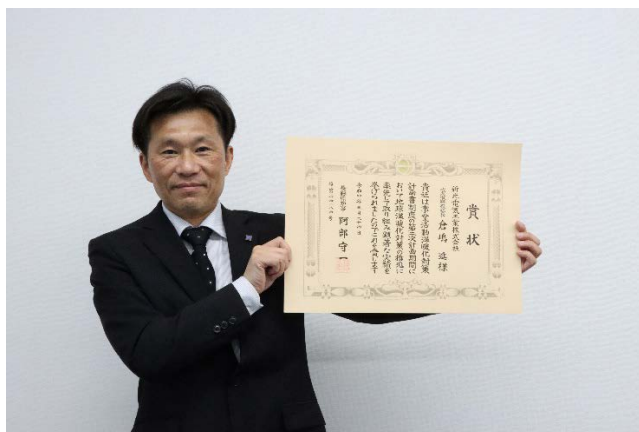 賞状
新光電気工業株式会社
倉嶋 進 様
貴社は事業活動温暖化対策
計画書制度の第三次計画期間に
おいて地球温暖化対策の推進に
率先して取り組み顕著な実績を
挙げられましたので
長野県知事 阿部守一